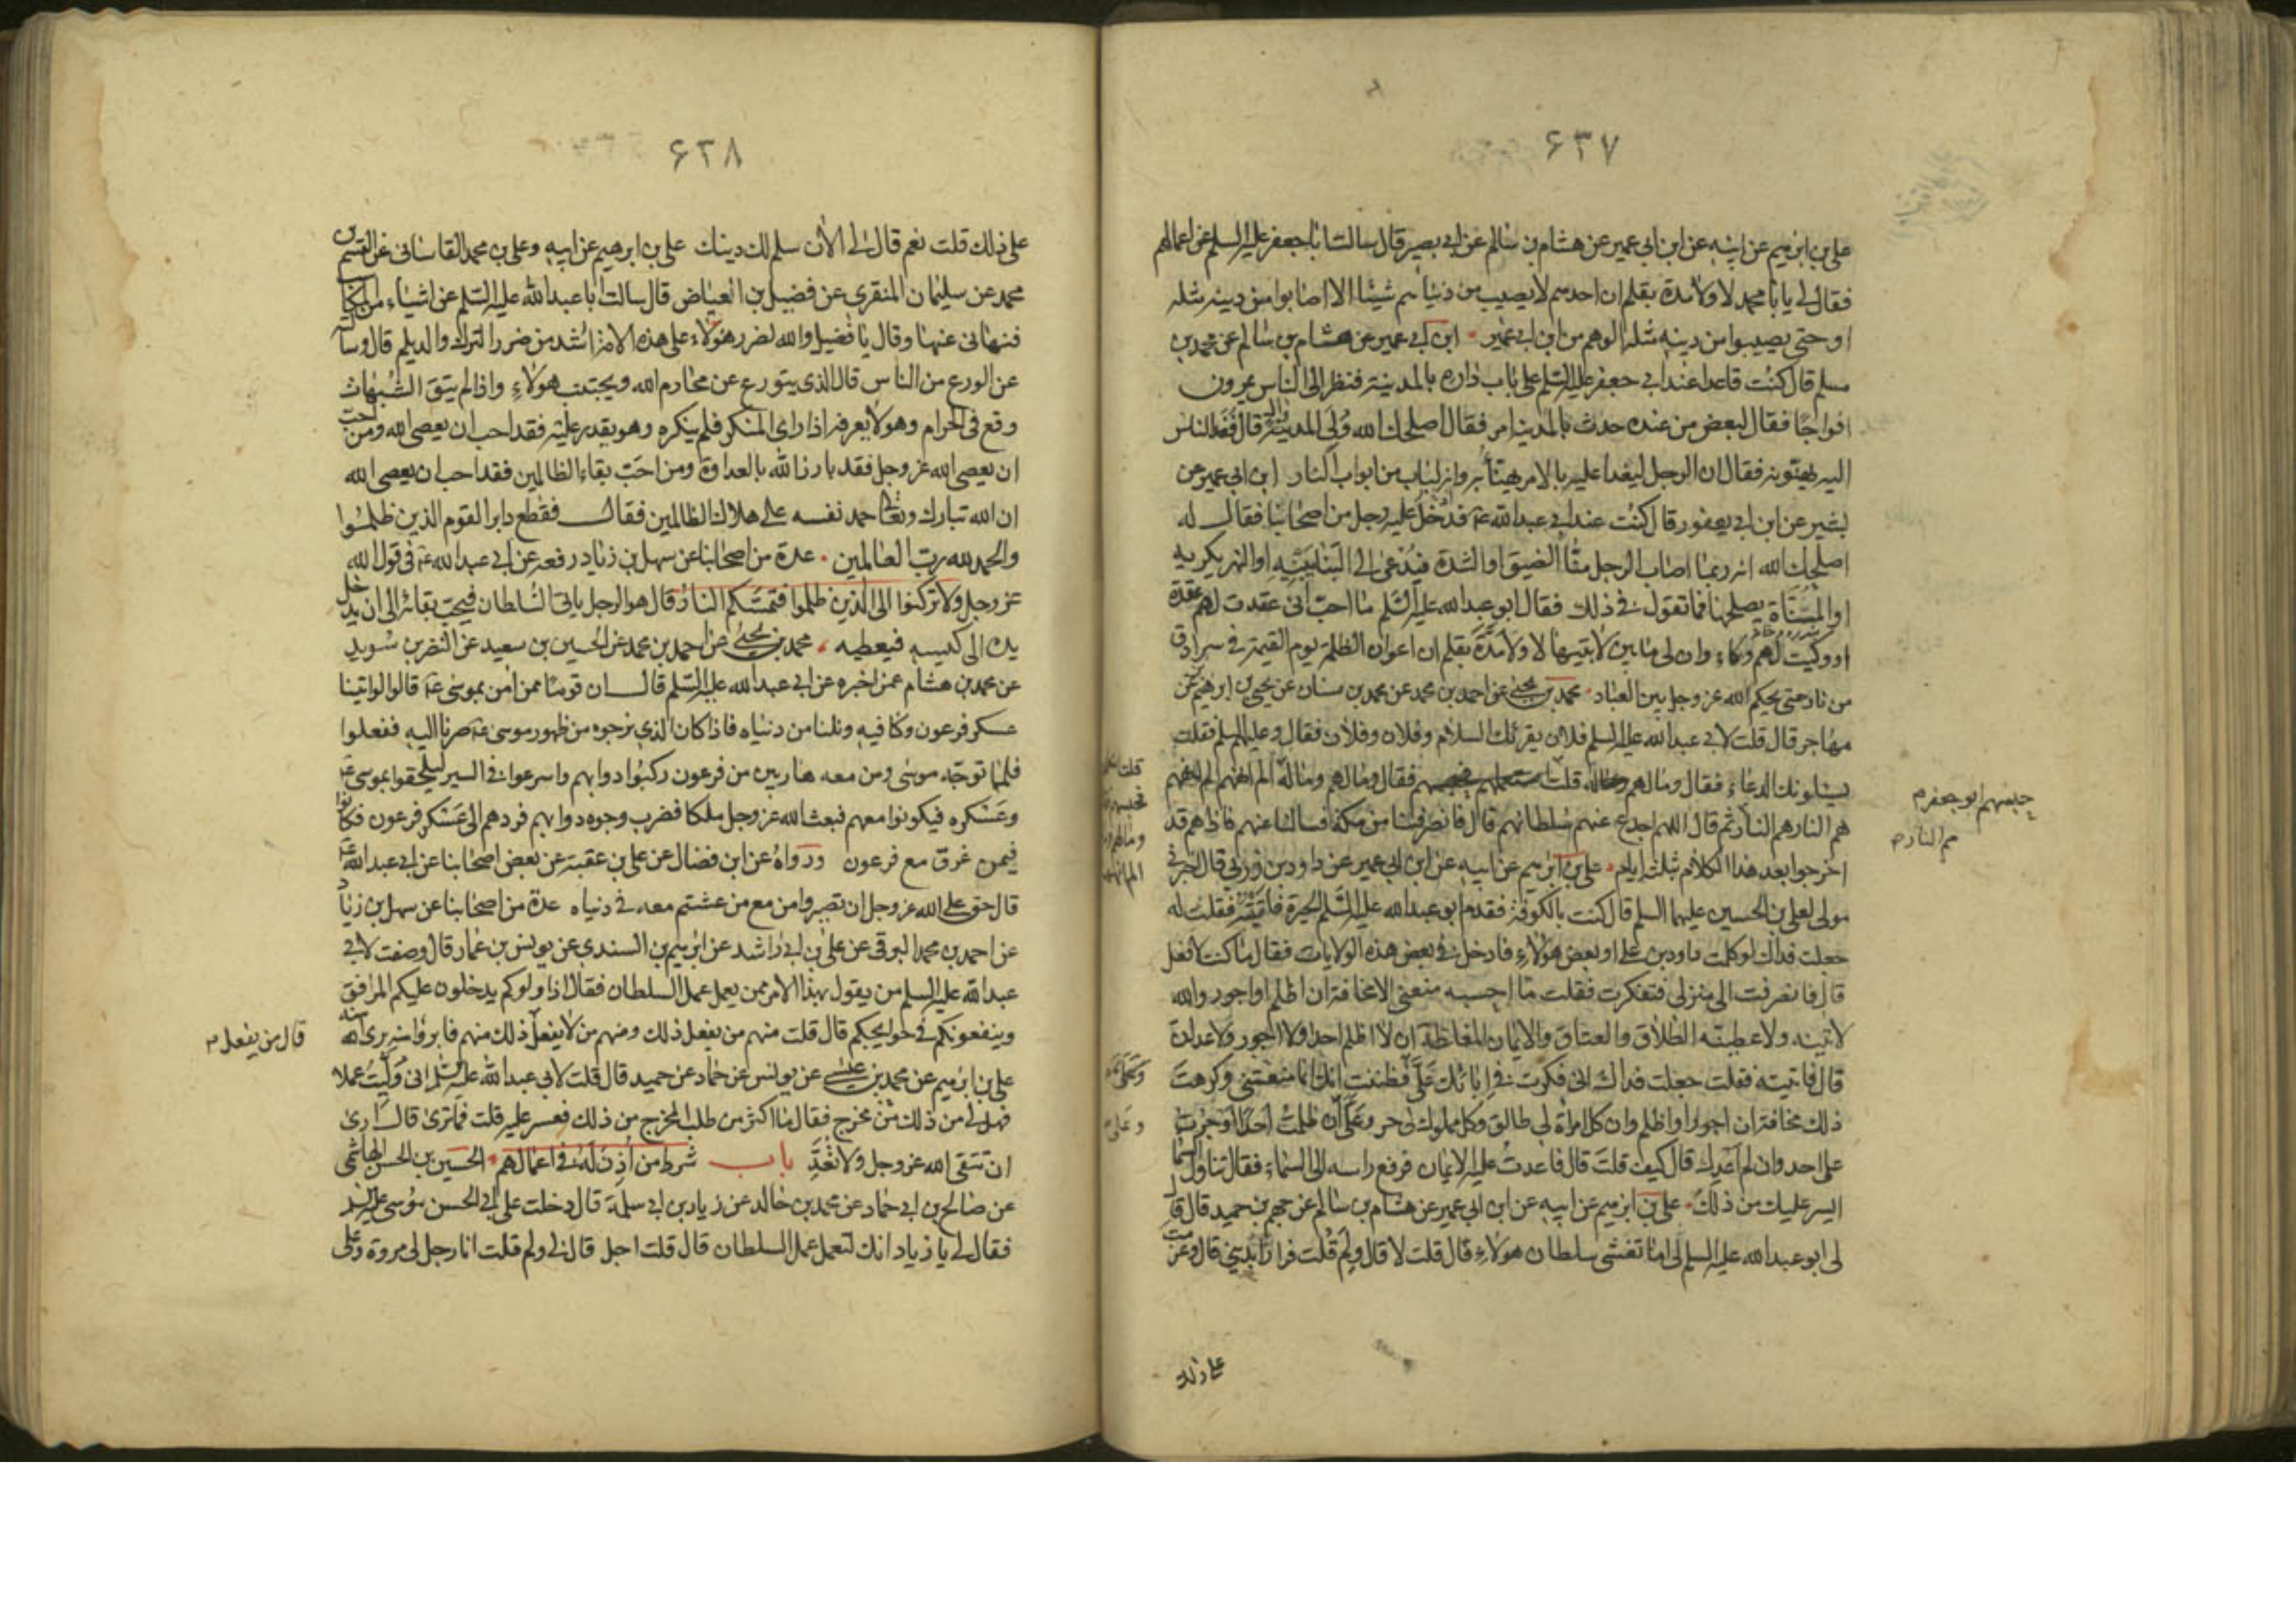 ۶۳۷
علي بن ابرهيم عن ابيه عن ابن ابي عمير عن هشام بن سالم عن ابي بصير قال سالت ابا جعفر عليه السلم عن اعمالهم
فقال لي يا با محمد لا ولا مدة بقلم ان احدهم لا يصيب من دنياهم شيئا الا اصابوا من دينه مثله
او حتى يصيبوا من دينه مثله الوهم من ابن ابي عمير ابن ابي عمير عن هشام بن سالم عن محمد بن
مسلم قال كنت قاعدا عند ابي جعفر عليه السلم على باب داره بالمدينة فنظر الى الناس يمرون
افواجا فقال لبعض من عنده حدث بالمدينة امر فقال اصلحك الله ولي المدينة وال قال فغدا الناس
اليه يهنئونه فقال ان الرجل ليغدا عليه بالامر يهنأ به وانه لباب من ابواب النار ابن ابي عمير عن
بشير عن ابن ابي يعفور قال كنت عند ابي عبد الله ع فدخل عليه رجل من اصحابنا فقال له
اصلحك الله انه ربما اصاب الرجل منا الضيق او الشدة فيدعى الى البناء يبنيه او النهر يكريه
او المسناة يصلحها فما تقول في ذلك فقال ابو عبد الله عليه السلم ما احب اني عقدت لهم عقدة
او وكيت لهم وكاء وان لي ما بين لابتيها لا ولا مدة بقلم ان اعوان الظلمة يوم القيمة في سرادق
من نار حتى يحكم الله عز وجل بين العباد محمد بن يحيى عن احمد بن محمد عن محمد بن سنان عن يحيى بن ابرهيم بن
مهاجر قال قلت لابي عبد الله عليه السلم فلان يقرئك السلام وفلان وفلان فقال وعليهم السلم قلت
يسئلونك الدعاء فقال وما لهم قلت فقال وما لهم وماله الم انههم الم انههم
هم النار هم النار ثم قال اللهم اجدع عنهم سلطانهم قال فانصرفنا من مكة فسالنا عنهم فاذا هم قد
اخرجوا بعد هذا الكلام بثلثة ايام علي بن ابرهيم عن ابيه عن ابن ابي عمير عن داود بن زربي قال اخبرني
مولى لعلي بن الحسين عليهما السلم قال كنت بالكوفة فقدم ابو عبد الله عليه السلم الحيرة فاتيته فقلت له
جعلت فداك لو كلمت داود بن علي او بعض هؤلاء فادخل في بعض هذه الولايات فقال ما كنت لافعل
قال فانصرفت الى منزلي فتفكرت فقلت ما احسبه منعني الا مخافة ان اظلم او اجور والله
لاتينه ولاعطينه الطلاق والعتاق والايمان المغلظة ان لا اظلم احدا ولا اجور ولاعدلن
قال فاتيته فقلت جعلت فداك اني فكرت في ابائك علي فظننت انك انما منعتني وكرهت
ذلك مخافة ان اجور او اظلم وان كل امراة لي طالق وكل مملوك لي حر وعلي ان ظلمت احدا او جرت
على احد وان لم اعدل قال كيف قلت قال فاعدت عليه الايمان فرفع راسه الى السماء فقال تناول السماء
ايسر عليك من ذلك علي بن ابرهيم عن ابيه عن ابن ابي عمير عن هشام بن سالم عن جهم بن حميد قال قال
لي ابو عبد الله عليه السلم اما تغشى سلطان هؤلاء قال قلت لا قال ولم قلت فرارا بديني قال وعزمت
على ذلك
حبسهم ابو جعفر م
هم النار م
۶۳۸
على ذلك قلت نعم قال لي الان سلم لك دينك علي بن ابرهيم عن ابيه وعلي بن محمد القاساني عن القسم بن
محمد عن سليمان المنقري عن فضيل بن العياض قال سالت ابا عبد الله عليه السلم عن اشياء من المكاسب
فنهاني عنها وقال يا فضيل والله لضرر هؤلاء على هذه الامة اشد من ضرر الترك والديلم قال وسالته
عن الورع من الناس قال الذي يتورع عن محارم الله ويجتنب هؤلاء واذا لم يتق الشبهات
وقع في الحرام وهو لا يعرفه اذا راى المنكر فلم ينكره وهو يقدر عليه فقد احب ان يعصى الله ومن احب
ان يعصى الله عز وجل فقد بارز الله بالعداوة ومن احب بقاء الظالمين فقد احب ان يعصى الله
ان الله تبارك وتعالى حمد نفسه على هلاك الظالمين فقال فقطع دابر القوم الذين ظلموا
والحمد لله رب العالمين عدة من اصحابنا عن سهل بن زياد رفعه عن ابي عبد الله ع في قول الله
عز وجل ولا تركنوا الى الذين ظلموا فتمسكم النار قال هو الرجل ياتي السلطان فيحب بقائه الى ان يدخل
يده الى كيسه فيعطيه محمد بن يحيى عن احمد بن محمد عن الحسين بن سعيد عن النضر بن سويد
عن محمد بن هشام عمن اخبره عن ابي عبد الله عليه السلم قال ان قوما ممن امن بموسى ع قالوا لو اتينا
عسكر فرعون وكنا فيه ونلنا من دنياه فاذا كان الذي نرجوه من ظهور موسى ع صرنا اليه ففعلوا
فلما توجه موسى ومن معه هاربين من فرعون ركبوا دوابهم واسرعوا في السير ليلحقوا بموسى ع
وعسكره فيكونوا معهم فبعث الله عز وجل ملكا فضرب وجوه دوابهم فردهم الى عسكر فرعون فكانوا
فيمن غرق مع فرعون ورواه عن ابن فضال عن علي بن عقبة عن بعض اصحابنا عن ابي عبد الله ع
قال حق على الله عز وجل ان تصيروا من مع من عشتم معه في دنياه عدة من اصحابنا عن سهل بن زياد
عن احمد بن محمد البرقي عن علي بن ابي راشد عن ابرهيم بن السندي عن يونس بن عمار قال وصفت لابي
عبد الله عليه السلم من يقول بهذا الامر ممن يعمل عمل السلطان فقال اذا ولوكم يدخلون عليكم المرافق
وينفعونكم في حوايجكم قال قلت منهم من يفعل ذلك ومنهم من لا يفعل ذلك منهم فابروا منه برى الله منه
علي بن ابرهيم عن محمد بن عيسى عن يونس عن حماد عن حميد قال قلت لابي عبد الله عليه السلم اني وليت عملا
فهل لي من ذلك من مخرج فقال ما اكثر من طلب المخرج من ذلك فعسر عليه قلت فما ترى قال ارى
ان تتقي الله عز وجل ولا تعد باب شرط من اذن له في اعمالهم الحسين بن الحسن الهاشمي
عن صالح بن ابي حماد عن محمد بن خالد عن زياد بن ابي سلمة قال دخلت على ابي الحسن موسى عليه السلم
فقال لي يا زياد انك لتعمل عمل السلطان قال قلت اجل قال لي ولم قلت انا رجل لي مروة وعلى
قال من يفعل م